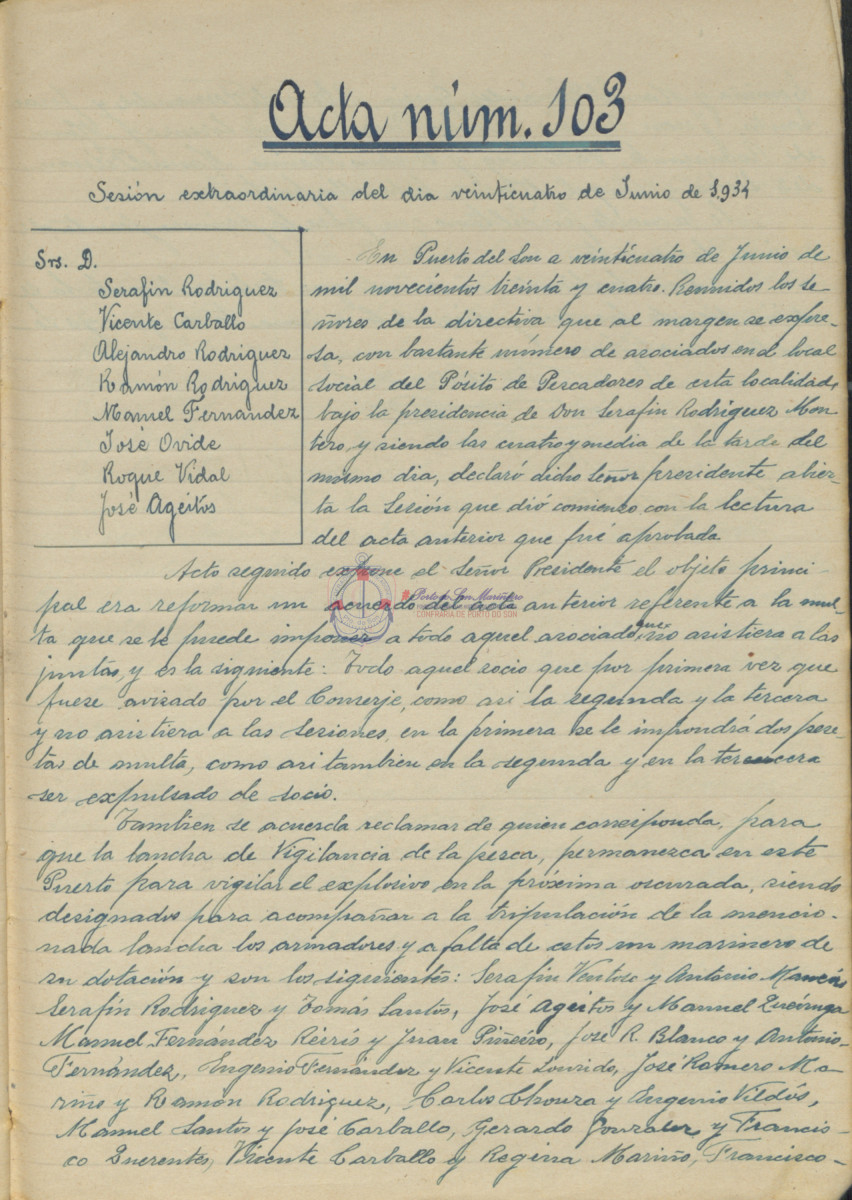 Acta núm. 103
Sesión extraordinaria del dia veinticuatro de Junio de 1,934
Srs. D.
Serafin Rodriguez
Vicente Carballo
Alejandro Rodriguez
Ramón Rodriguez
Manuel Fernández
José Ovide
Roque Vidal
José Ageitos
En Puerto del Son a veinticuatro de Junio de
mil novecientos treinta y cuatro. Reunidos los se-
ñores de la directiva que al margen se expre-
sa, con bastante número de asociados en el local
social del Pósito de Pescadores de esta localidad,
bajo la presidencia de Don Serafin Rodriguez Mon-
tero, y siendo las cuatro y media de la tarde del
mismo dia, declaró dicho Señor presidente abier-
ta la Sesión que dió comienzo con la lectura
del acta anterior que fué aprobada.
Acto segundo expone el Señor Presidente el objeto princi-
pal era reformar un acuerdo del acta anterior referente a la mul-
ta que se le puede imponer a todo aquel asociado que no asistiera a las
juntas, y es la siguiente: Todo aquel socio que por primera vez que
fuese avisado por el Conserje, como asi la segunda y la tercera
y no asistiera a las sesiones, en la primera se le impondrá dos pese-
tas de multa, como asi tambien en la segunda y en la tercera
ser expulsado de socio.
Tambien se acuerda reclamar de quien corresponda, para
que la lancha de Vigilancia de la pesca, permanezca en este
Puerto para vigilar el explosivo en la próxima oscurada, siendo
designados para acompañar a la tripulación de la mencio-
nada lancha los armadores y a falta de estos un marinero de
su dotación y son los siguientes: Serafin Ventoso y Antonio
Serafín Rodriguez y Tomás Santos, José Ageitos y Manuel Queiruga
Manuel Fernández Reiris y Juan Piñeiro, José R. Blanco y Antonio
Fernández, Eugenio Fernandez y Vicente Lourido, José Romero Ma-
riño y Ramón Rodriguez, Carlos Chouza y Eugenio Vildós,
Manuel Santos y José Carballo, Gerardo Gonzalez y Francis-
co Querentes, Vicente Carballo y Regina Mariño, Francisco-
Porto do Son Mariñeiro
CONFRARIA DE PORTO DO SON